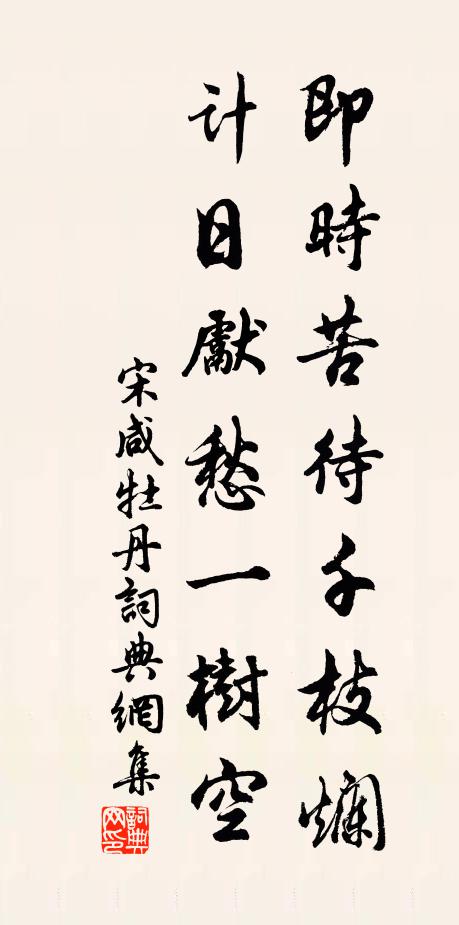 即時苦待千枝爛
計日獻愁一樹空
宋咸牡丹詞典網集
詞典網印